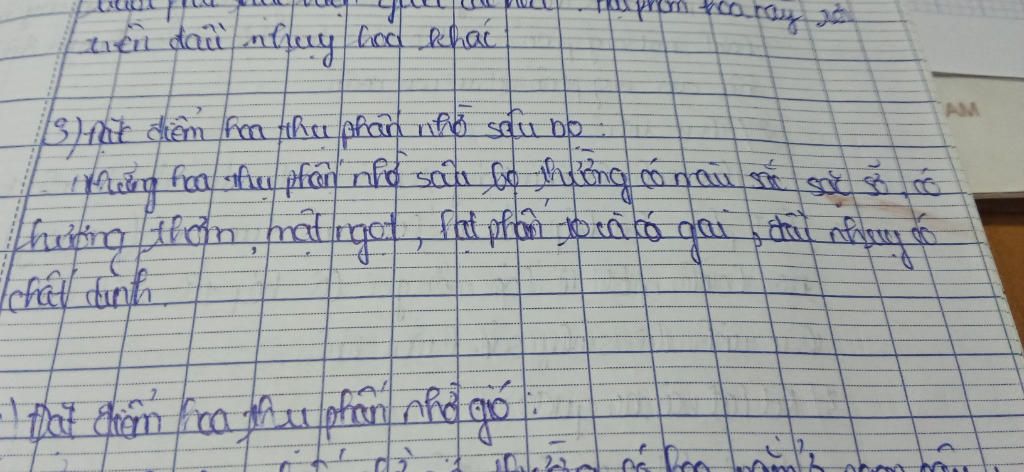 trên đầu nhụy hoa khác
3) Đặc điểm hoa thụ phấn nhờ sâu bọ
Những hoa thụ phấn nhờ sâu bọ thường có màu sắc sặc sỡ, có
hương thơm, mật ngọt, hạt phấn to và có gai, đầu nhụy có
chất dính
) Đặc điểm hoa thụ phấn nhờ gió:
AM